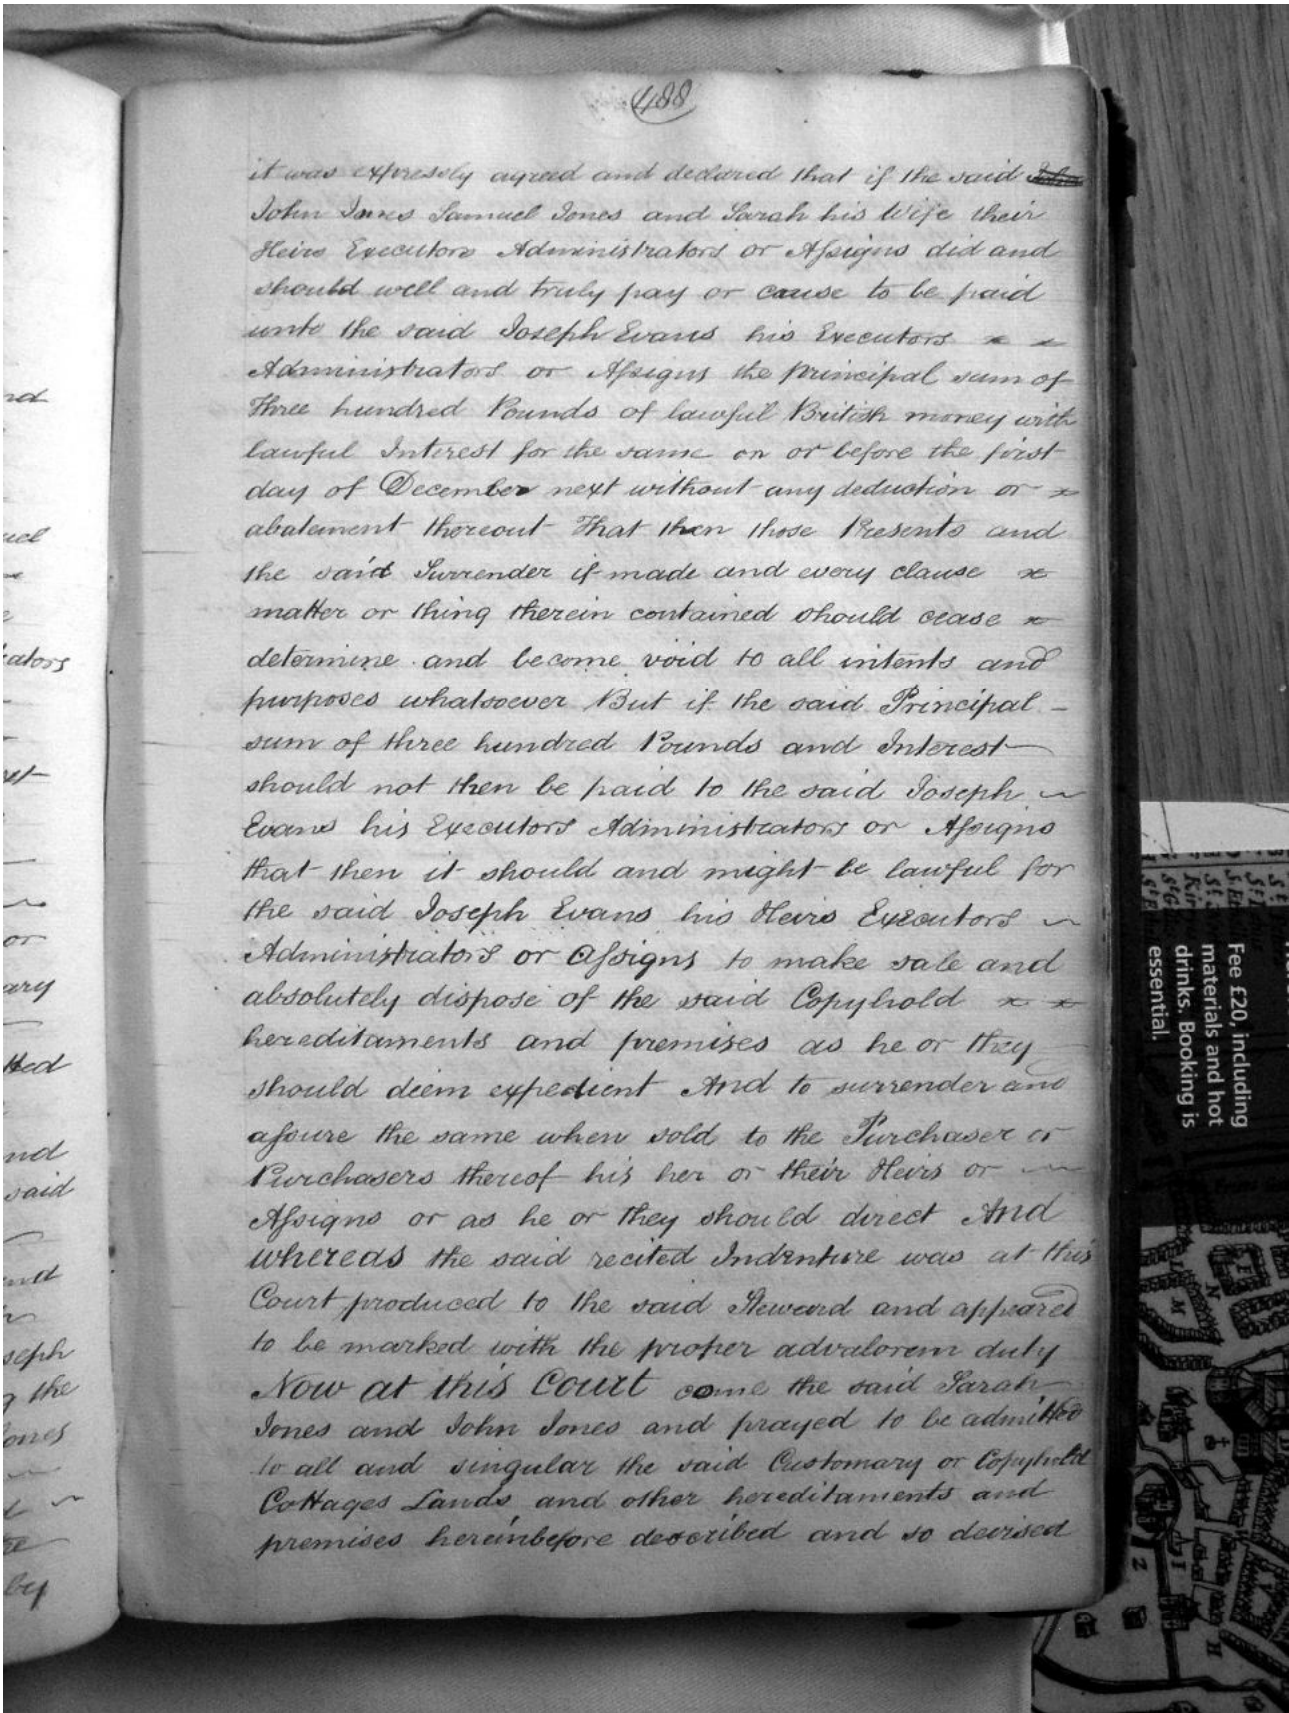 488
it was expressly agreed and declared that if the said John
John Jones Samuel Jones and Sarah his Wife their
Heirs Executors Administrators or Assigns did and
should well and truly pay or cause to be paid
unto the said Joseph Evans his Executors
Administrators or Assigns the principal sum of
Three hundred Pounds of lawful British money with
lawful Interest for the same on or before the first
day of December next without any deduction or
abatement thereout That then those Presents and
the said Surrender if made and every clause
matter or thing therein contained should cease
determine and become void to all intents and
purposes whatsoever But if the said Principal
sum of three hundred Pounds and Interest
should not then be paid to the said Joseph
Evans his Executors Administrators or Assigns
that then it should and might be lawful for
the said Joseph Evans his Heirs Executors
Administrators or Assigns to make sale and
absolutely dispose of the said Copyhold
hereditaments and premises as he or they
should deem expedient And to surrender and
assure the same when sold to the Purchaser or
Purchasers thereof his her or their Heirs or
Assigns or as he or they should direct And
whereas the said recited Indenture was at this
Court produced to the said Steward and appeared
to be marked with the proper advalorem duty
Now at this Court come the said Sarah
Jones and John Jones and prayed to be admitted
to all and singular the said Customary or Copyhold
Cottages Lands and other hereditaments and
premises hereinbefore described and so devised
nd
uel
ators
or
ary
tted
nd
said
end
seph
g the
ones
by
Fee £20, including
materials and hot
drinks. Booking is
essential.